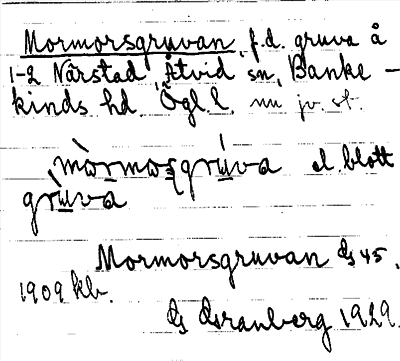 Mormorsgruvan, f.d. gruva å
1-2 Närstad, Åtvid sn, Banke-
kinds hd. Ögl. l. nu jv. st.
mòrmorsgrúva el. blott
grùva
Mormorsgruvan ds 45.
1909 kb.
Granberg 1929.